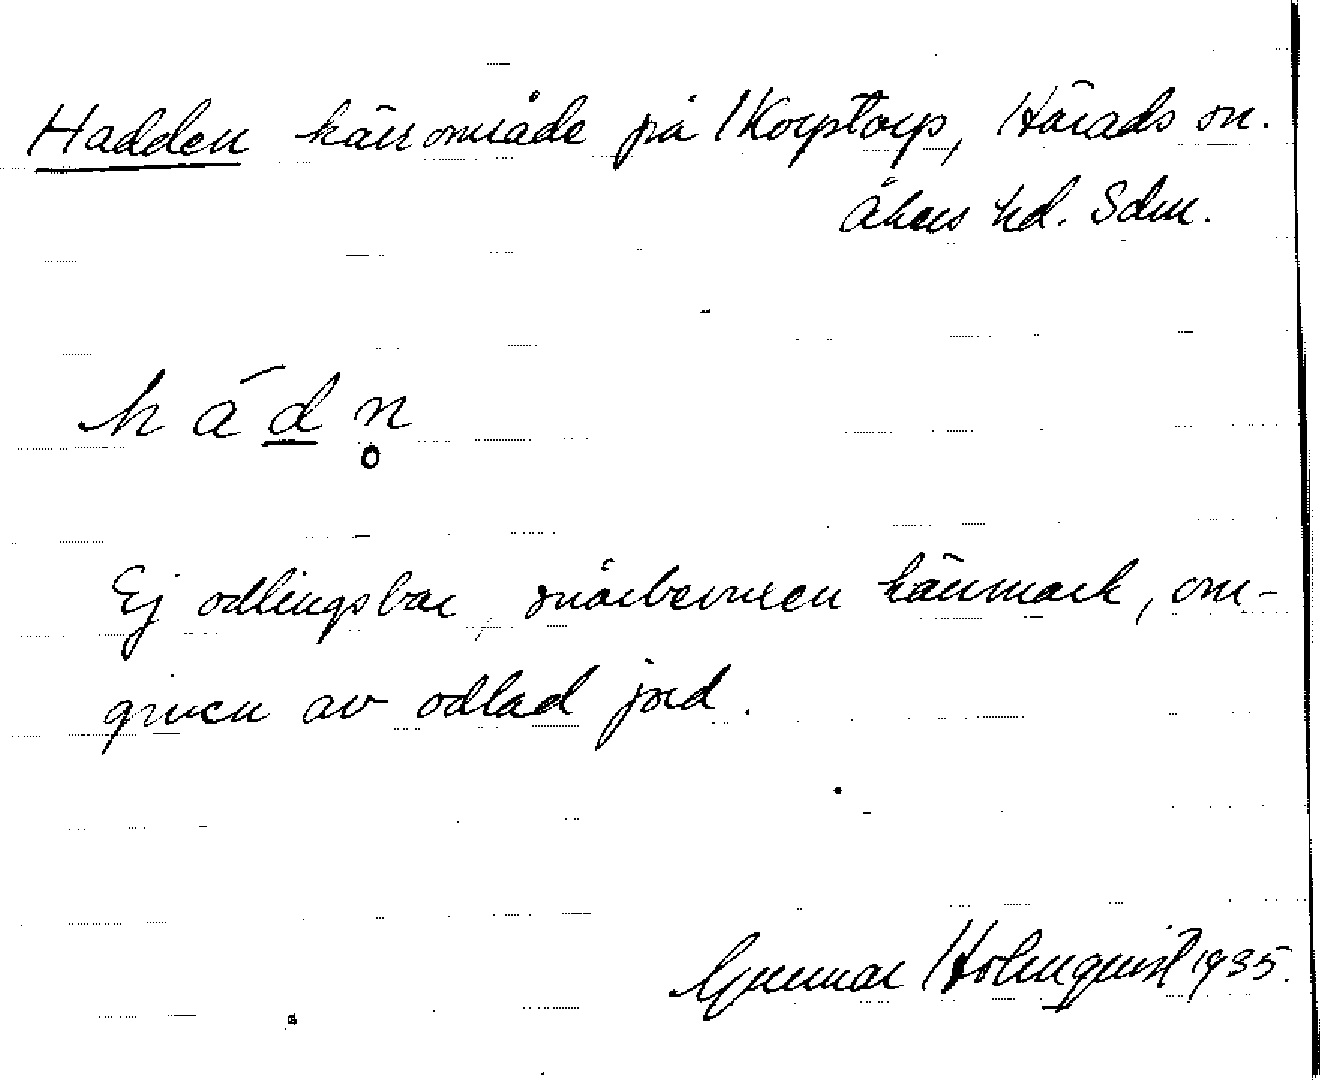 Hadden kärrområde på Korptorp, Härads sn.
Åkers hd. Sdm.
h á d n̥
Ej odlingsbar, småbevuxen kärrmark, om-
given av odlad jord.
Gunnar Holmquist 1935.